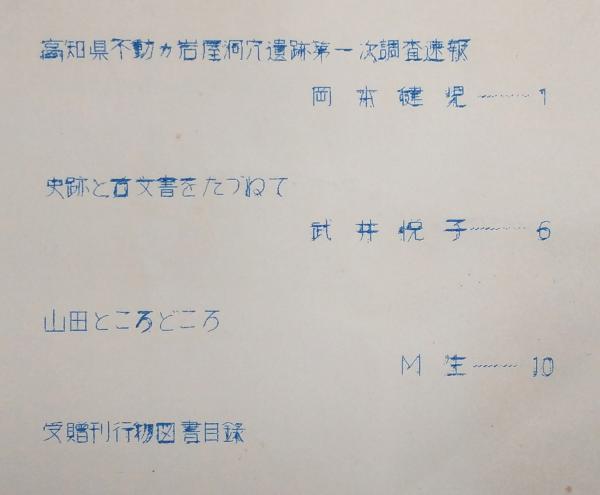 高知県不動ガ岩屋洞穴遺跡第一次調査速報
岡本健児………1
史跡と古文書をたづねて
武井悦子………6
山田ところどころ
M生………10
受贈刊行物図書目録